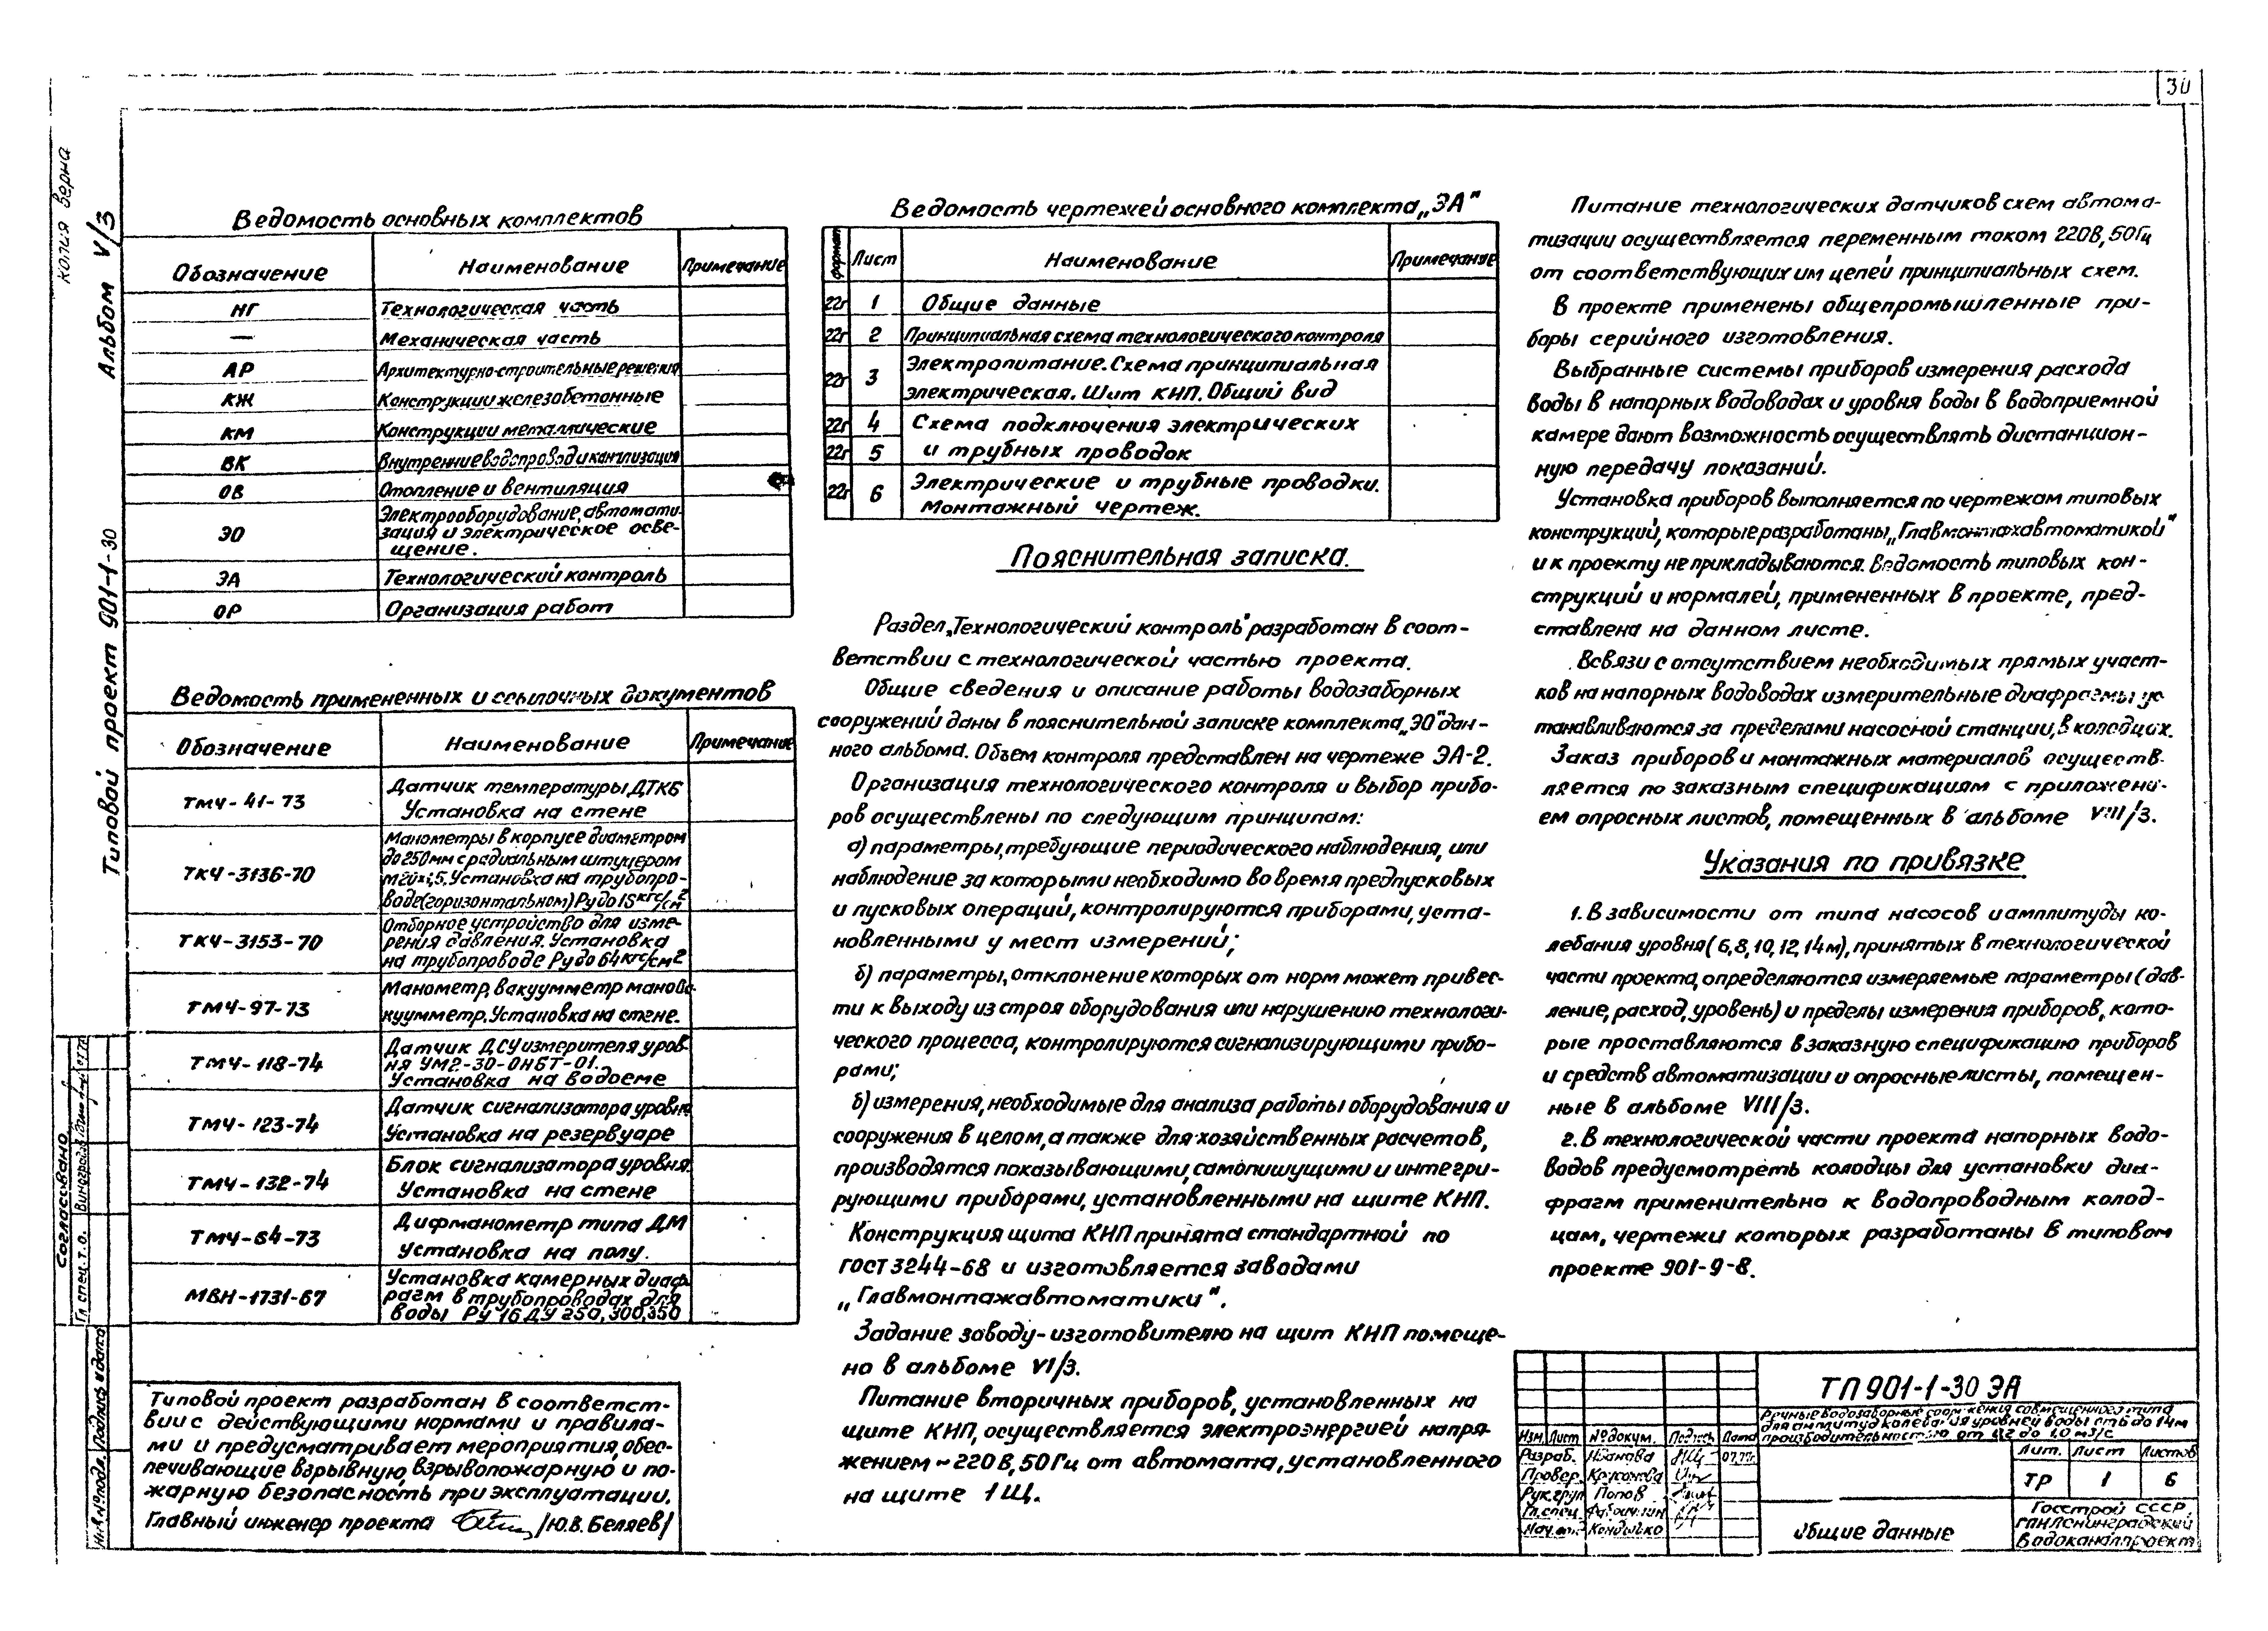 30
Копия верна
Альбом V/3
Типовой проект 901-1-30
Ведомость основных комплектов
Обозначение Наименование Примечание
НГ Технологическая часть
— Механическая часть
АР Архитектурно-строительные решения
КЖ Конструкции железобетонные
КМ Конструкции металлические
ВК Внутренние водопровод и канализация
ОВ Отопление и вентиляция
ЭО Электрооборудование, автомати-
зация и электрическое осве-
щение.
ЭА Технологический контроль
ОР Организация работ
Ведомость примененных и ссылочных документов
Обозначение Наименование Примечание
ТМЧ-41-73 Датчик температуры ДТКБ
Установка на стене
ТКЧ-3136-70 Манометры в корпусе диаметром
до 250мм с радиальным штуцером
М20х1,5. Установка на трубопро-
воде (горизонтальном) Ру до 15 кгс/см2
ТКЧ-3153-70 Отборное устройство для изме-
рения давления. Установка
на трубопроводе Ру до 64 кгс/см2
ТМЧ-97-73 Манометр, вакуумметр манова-
куумметр. Установка на стене.
ТМЧ-118-74 Датчик ДСУ измерителя уров-
ня УМ2-30-ОНБТ-01.
Установка на водоеме
ТМЧ-123-74 Датчик сигнализатора уровня
Установка на резервуаре
ТМЧ-132-74 Блок сигнализатора уровня.
Установка на стене
ТМЧ-64-73 Дифманометр типа ДМ
Установка на полу.
МВН-1731-67 Установка камерных диаф-
рагм в трубопроводах для
воды РУ 16 ДУ 250, 300, 350
Типовой проект разработан в соответст-
вии с действующими нормами и правила-
ми и предусматривает мероприятия, обес-
печивающие взрывную, взрывопожарную и по-
жарную безопасность при эксплуатации.
Главный инженер проекта /Ю.В. Беляев/
Ведомость чертежей основного комплекта „ЭА"
формат Лист Наименование Примечание
22г 1 Общие данные
22г 2 Принципиальная схема технологического контроля
22г 3 Электропитание. Схема принципиальная
электрическая. Щит КНП. Общий вид
22г 4 Схема подключения электрических
22г 5 и трубных проводок
22г 6 Электрические и трубные проводки.
Монтажный чертеж.
Пояснительная записка.
Раздел „Технологический контроль" разработан в соот-
ветствии с технологической частью проекта.
Общие сведения и описание работы водозаборных
сооружений даны в пояснительной записке комплекта „ЭО" дан-
ного альбома. Объем контроля представлен на чертеже ЭА-2.
Организация технологического контроля и выбор прибо-
ров осуществлены по следующим принципам:
а) параметры, требующие периодического наблюдения, или
наблюдение за которыми необходимо во время предпусковых
и пусковых операций, контролируются приборами, уста-
новленными у мест измерений;
б) параметры, отклонение которых от норм может привес-
ти к выходу из строя оборудования или нарушению технологи-
ческого процесса, контролируются сигнализирующими прибо-
рами;
б) измерения, необходимые для анализа работы оборудования и
сооружения в целом, а также для хозяйственных расчетов,
производятся показывающими, самопишущими и интегри-
рующими приборами, установленными на щите КНП.
Конструкция щита КНП принята стандартной по
ГОСТ 3244-68 и изготовляется заводами
„Главмонтажавтоматики".
Задание заводу-изготовителю на щит КНП помеще-
но в альбоме VI/3.
Питание вторичных приборов, установленных на
щите КНП, осуществляется электроэнергией напря-
жением ~220В, 50Гц от автомата, установленного
на щите 1Щ.
Питание технологических датчиков схем автома-
тизации осуществляется переменным током 220В, 50Гц
от соответствующих им цепей принципиальных схем.
В проекте применены общепромышленные при-
боры серийного изготовления.
Выбранные системы приборов измерения расхода
воды в напорных водоводах и уровня воды в водоприемной
камере дают возможность осуществлять дистанцион-
ную передачу показаний.
Установка приборов выполняется по чертежам типовых
конструкций, которые разработаны „Главмонтажавтоматикой"
и к проекту не прикладываются. Ведомость типовых кон-
струкций и нормалей, примененных в проекте, пред-
ставлена на данном листе.
Всвязи с отсутствием необходимых прямых участ-
ков на напорных водоводах измерительные диафрагмы ус
танавливаются за пределами насосной станции, в колодцах.
Заказ приборов и монтажных материалов осуществ-
ляется по заказным спецификациям с приложени-
ем опросных листов, помещенных в альбоме VIII/3.
Указания по привязке
1. В зависимости от типа насосов и амплитуды ко-
лебания уровня (6, 8, 10, 12, 14м), принятых в технологической
части проекта, определяются измеряемые параметры (дав-
ление, расход, уровень) и пределы измерения приборов, кото-
рые проставляются в заказную спецификацию приборов
и средств автоматизации и опросные листы, помещен-
ные в альбоме VIII/3.
2. В технологической части проекта напорных водо-
водов предусмотреть колодцы для установки диа-
фрагм применительно к водопроводным колод-
цам, чертежи которых разработаны в типовом
проекте 901-9-8.
ТП 901-1-30 ЭА
Речные водозаборные сооружения совмещенного типа
для амплитуд колебания уровней воды от 6 до 14м
производительностью от 0,2 до 1,0 м3/с
Изм. Лист № докум. Подпись Дата
Разраб. Иванова
Провер.
Рук. груп Попов
Гл. спец.
Нач. Кондывко
Лит. Лист Листов
ТР 1 6
Общие данные
Госстрой СССР
ГПИ Ленинградский
Водоканалпроект
Согласовано
Гл. спец. т.о.
Инв. № подл. Подпись и дата